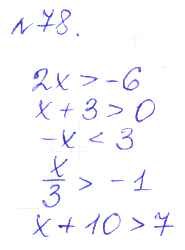 №78.
2x > -6
x + 3 > 0
-x < 3
x/3 > -1
x + 10 > 7